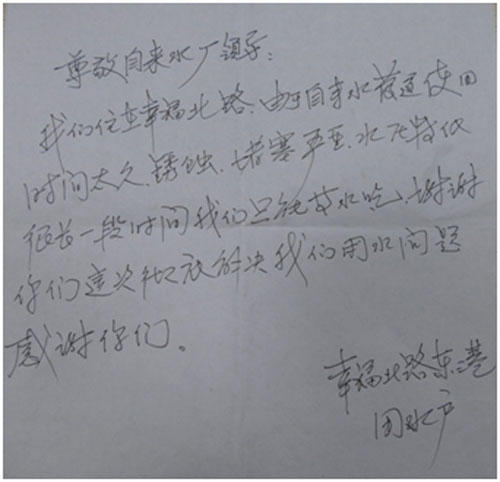 尊敬自来水厂领导:
我们住在幸福北路、由于自来水管道使用
时间太久、锈蚀、堵塞严重、水压特低
很长一段时间我们只能节水吃、谢谢
你们这次彻底解决我们用水问题
感谢你们。
幸福北路东港
用水户